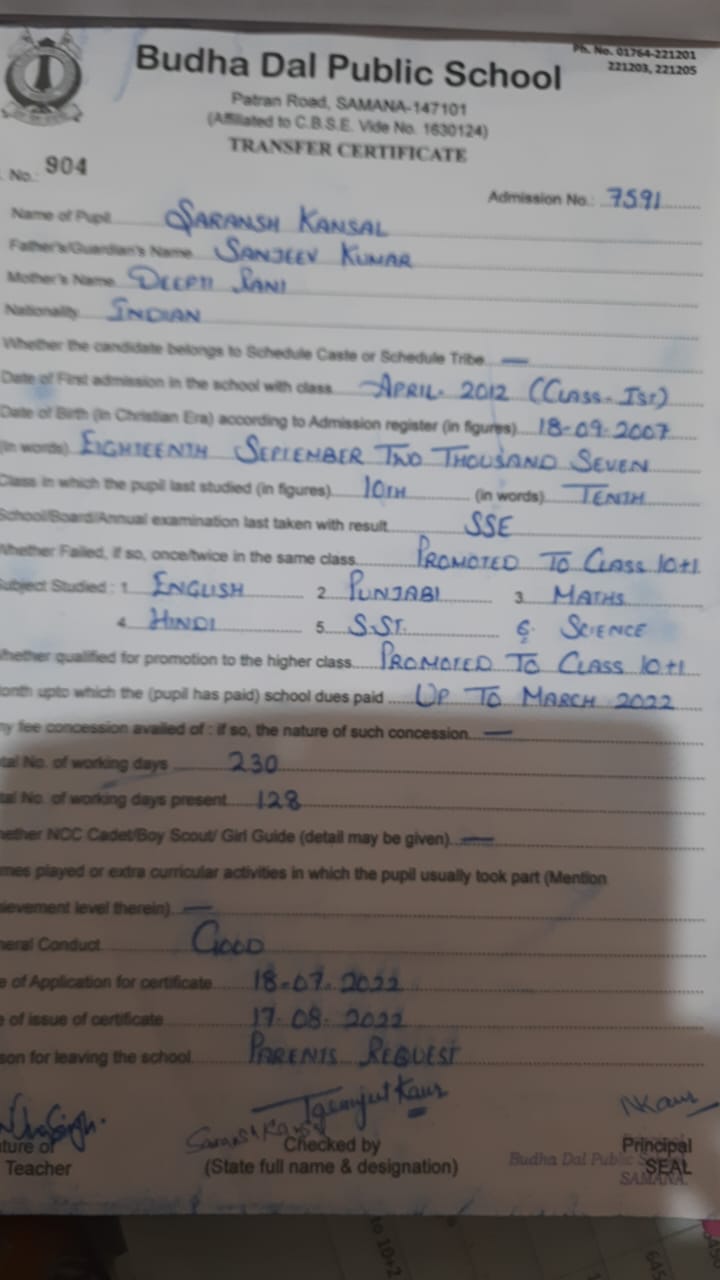 Budha Dal Public School
Ph. No. 01764-221201
221203, 221205
Patran Road, SAMANA-147101
(Affiliated to C.B.S.E. Vide No. 1630124)
TRANSFER CERTIFICATE
No.: 904
Admission No.: 7591
Name of Pupil SARANSH KANSAL
Father's/Guardian's Name SANJEEV KUMAR
Mother's Name DEEPTI RANI
Nationality INDIAN
Whether the candidate belongs to Schedule Caste or Schedule Tribe —
Date of First admission in the school with class APRIL. 2012 (CLASS-IST)
Date of Birth (In Christian Era) according to Admission register (in figures) 18-09-2007
(in words) EIGHTEENTH SEPTEMBER TWO THOUSAND SEVEN
Class in which the pupil last studied (in figures) 10TH (in words) TENTH
School/Board/Annual examination last taken with result SSE
Whether Failed, if so, once/twice in the same class PROMOTED TO CLASS 10+1
ubject Studied : 1 ENGLISH 2 PUNJABI 3 MATHS
4 HINDI 5. S.ST. 6 SCIENCE
hether qualified for promotion to the higher class PROMOTED TO CLASS 10+1
onth upto which the (pupil has paid) school dues paid UP TO MARCH 2022
ny fee concession availed of : if so, the nature of such concession —
tal No. of working days 230
tal No. of working days present 128
hether NCC Cadet/Boy Scout/ Girl Guide (detail may be given) —
mes played or extra curricular activities in which the pupil usually took part (Mention
ievement level therein) —
neral Conduct GOOD
e of Application for certificate 18-07-2022
e of issue of certificate 17-08-2022
son for leaving the school PARENTS REQUEST
ture of Checked by Principal
Teacher (State full name & designation) SEAL
Budha Dal Public
SAMANA.
to 10+2